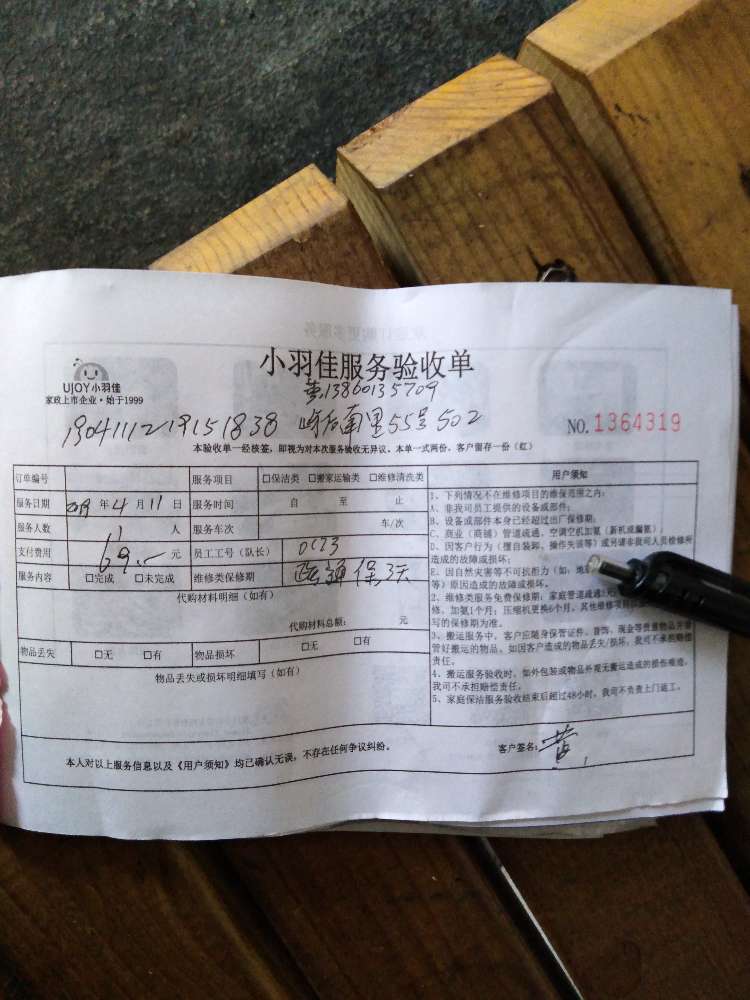 小羽佳服务验收单
UJOY小羽佳
家政上市企业·始于1999
黄13860135709
1904111219151838
南里55号502
NO.1364319
本验收单一经核签，即视为对本次服务验收无异议。本单一式两份，客户留存一份（红）
订单编号 服务项目 □保洁类 □搬家运输类 □维修清洗类 用户须知
服务日期 2019年4月11日 服务时间 自 至 止
服务人数 1 人 服务车次 车/次
支付费用 69.— 元 员工工号（队长）
服务内容 □完成 □未完成 维修类保修期 疏通保3天
代购材料明细（如有）
代购材料总额： 元
物品丢失 □无 □有 物品损坏 □无 □有
物品丢失或损坏明细填写（如有）
1、下列情况不在维修项目的维保范围之内：
A、非我司员工提供的设备或部件；
B、设备或部件本身已经超过出厂保修期；
C、商业（商铺）管道疏通、空调空机加氨（新机或漏氨）；
D、因客户行为（擅自装卸、操作失误等）或另请非我司人员检修所
造成的故障或损坏；
E、因自然灾害等不可抗力（如：地
等）原因造成的故障或损坏。
2、维修类服务免费保修期：家庭管道疏通
修、加氨1个月；压缩机更换6个月，其他维修项目
写的保修期为准。
3、搬运服务中，客户应随身保管证件、首饰、现金等贵重物品并
管好搬运的物品，如因客户造成的物品丢失/损坏，我司不承担赔偿
责任。
4、搬运服务验收时，如外包装或物品外观无搬运造成的损伤痕迹，
我司不承担赔偿责任。
5、家庭保洁服务验收结束后超过48小时，我司不负责上门返工。
本人对以上服务信息以及《用户须知》均已确认无误，不存在任何争议纠纷。
客户签名：黄